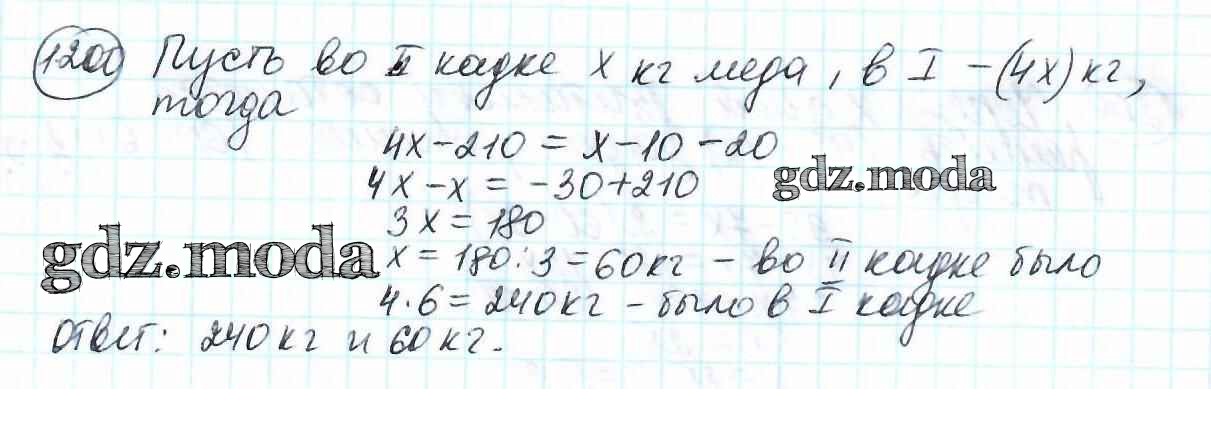 1200 Пусть во II кадке x кг меда, в I – (4x) кг,
тогда
4x – 210 = x – 10 – 20
4x – x = –30 + 210
gdz.moda
3x = 180
gdz.moda
x = 180 : 3 = 60 кг – во II кадке было
4 · 6 = 240 кг – было в I кадке
Ответ: 240 кг и 60 кг.